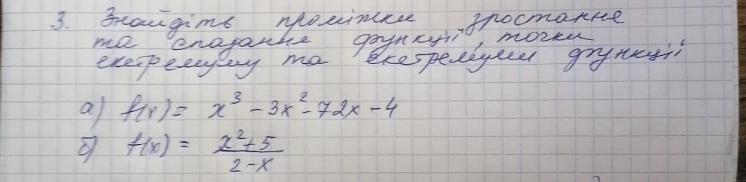 3. Знайдіть проміжки зростання
та спадання функції, точки
екстремуму та екстремуми функції
а) f(x) = x³ - 3x² - 72x - 4
б) f(x) = (x²+5)/(2-x)